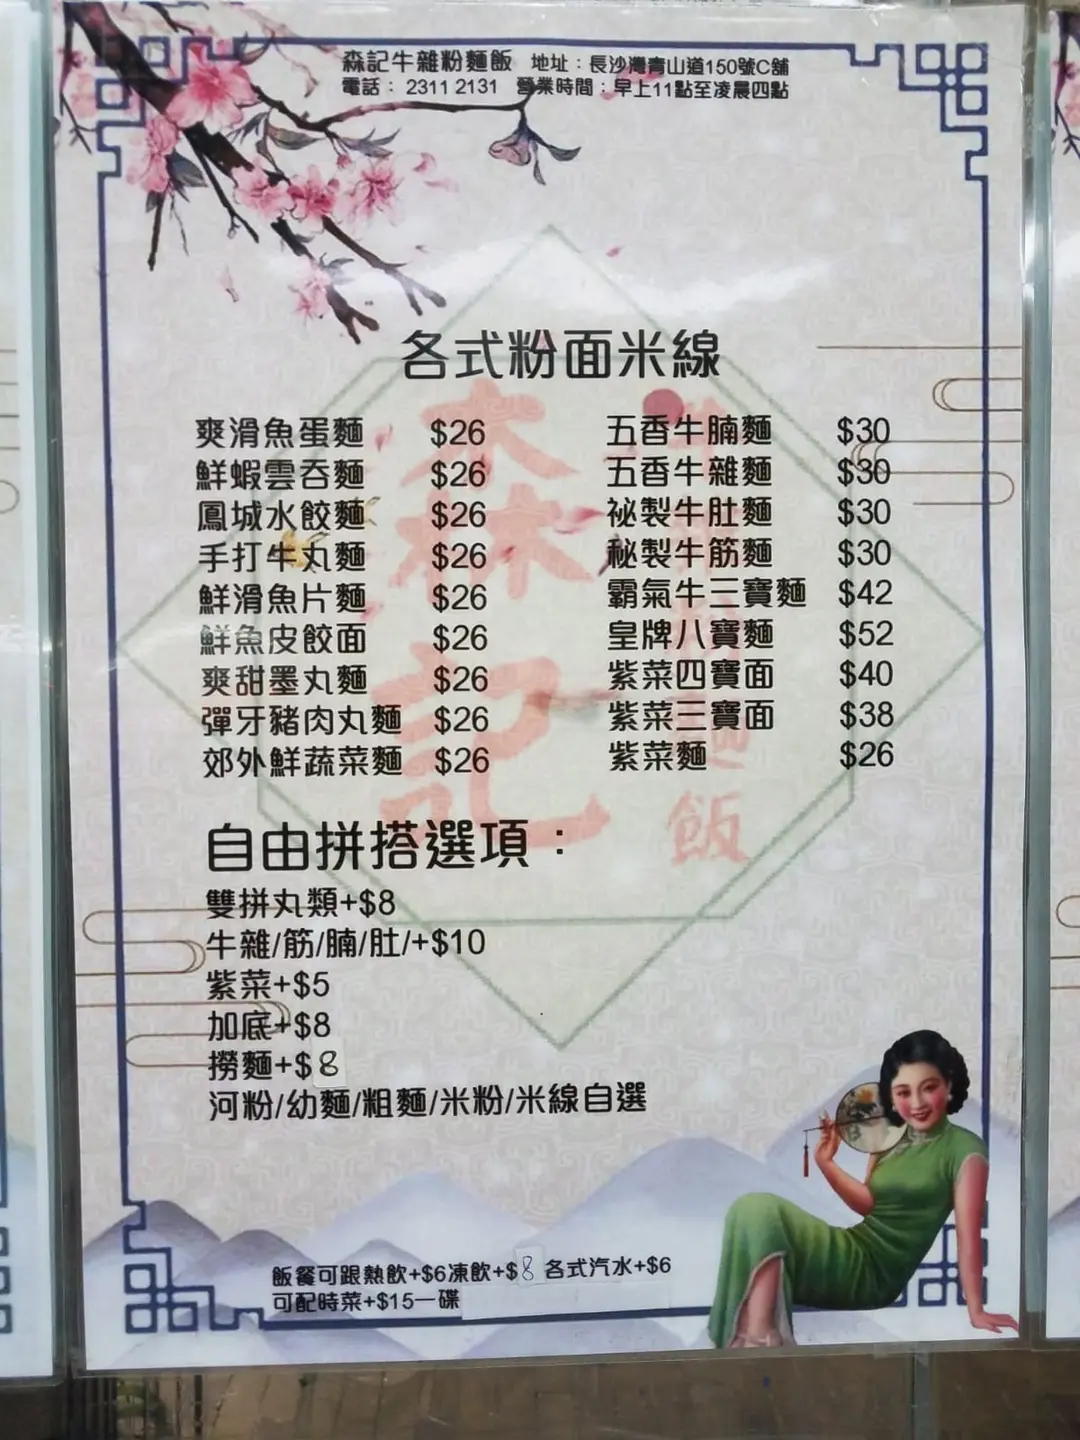 森記牛雜粉麵飯 地址：長沙灣青山道150號C舖
電話： 2311 2131 營業時間：早上11點至凌晨四點
各式粉面米線
爽滑魚蛋麵 $26
鮮蝦雲吞麵 $26
鳳城水餃麵 $26
手打牛丸麵 $26
鮮滑魚片麵 $26
鮮魚皮餃面 $26
爽甜墨丸麵 $26
彈牙豬肉丸麵 $26
郊外鮮蔬菜麵 $26
五香牛腩麵 $30
五香牛雜麵 $30
祕製牛肚麵 $30
秘製牛筋麵 $30
霸氣牛三寶麵 $42
皇牌八寶麵 $52
紫菜四寶面 $40
紫菜三寶面 $38
紫菜麵 $26
森記
飯
自由拼搭選項：
雙拼丸類+$8
牛雜/筋/腩/肚/+$10
紫菜+$5
加底+$8
撈麵+$8
河粉/幼麵/粗麵/米粉/米線自選
飯餐可跟熱飲+$6凍飲+$8 各式汽水+$6
可配時菜+$15一碟